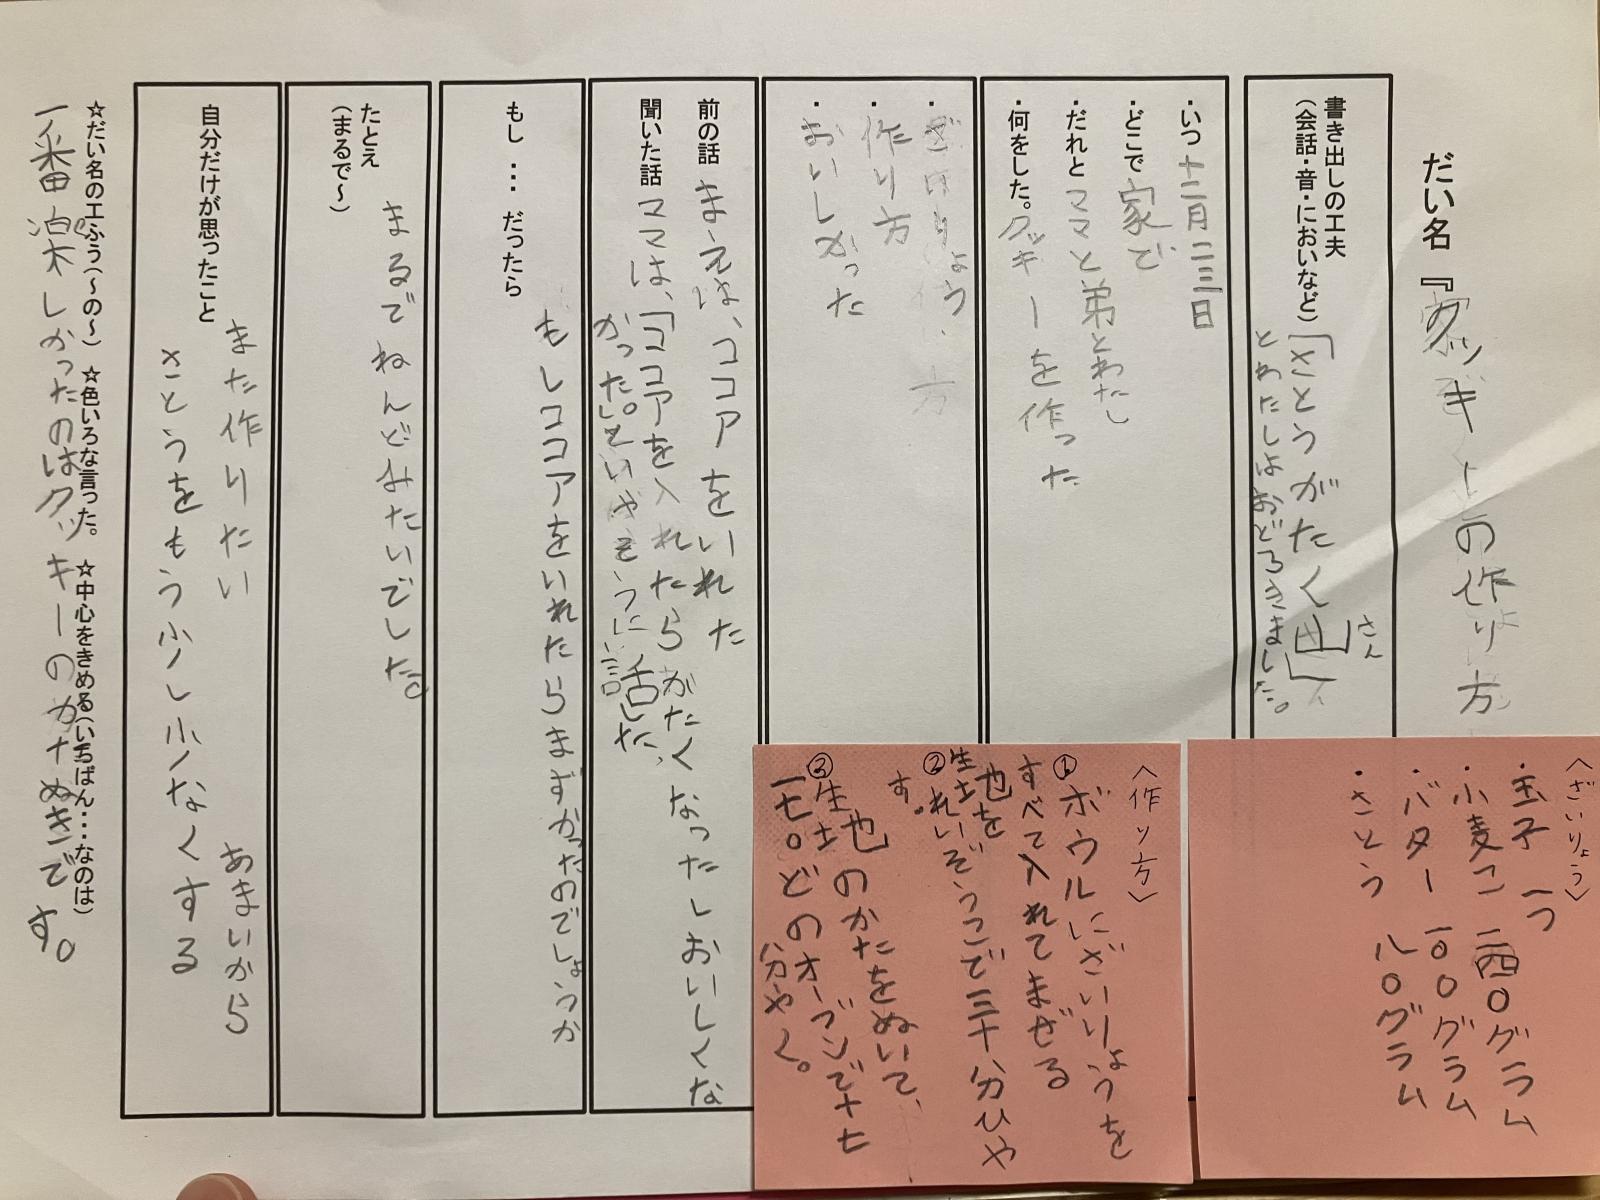 だい名『クッキーの作り方
書き出しの工夫
(会話・音・においなど)
「さとうがたく山」
さん
とわたしはおどろきました。
・いつ 十二月二三日
・どこで 家で
・だれと ママと弟とわたし
・何をした。クッキーを作った
・ざいりょう
・作り方
・おいしかった
前の話 まえは、ココアをいれた
聞いた話 ママは、「ココアを入れたらがたくなったしおいしくな
かった。」といやそうに話した、
もし … だったら
もしココアをいれたらまずかったのでしょうか
たとえ
(まるで~)
まるでねんどみたいでした。
自分だけが思ったこと
また作りたい あまいから
さとうをもう少し小なくする
☆だい名の工ふう(~の~) ☆色いろな言った。 ☆中心をきめる(いちばん・・・なのは)
一番楽しかったのはクッキーのかたぬきです。
〈ざいりょう〉
・玉子 一つ
・小麦こ 一四〇グラム
・バター 一〇〇グラム
・さとう 八〇グラム
〈作り方〉
①ボウルにざいりょうを
すべて入れてまぜる
②生地をれいぞうこで三十分ひや
す。
③生地のかたをぬいて、
一七〇どのオーブンで十七
分やく。